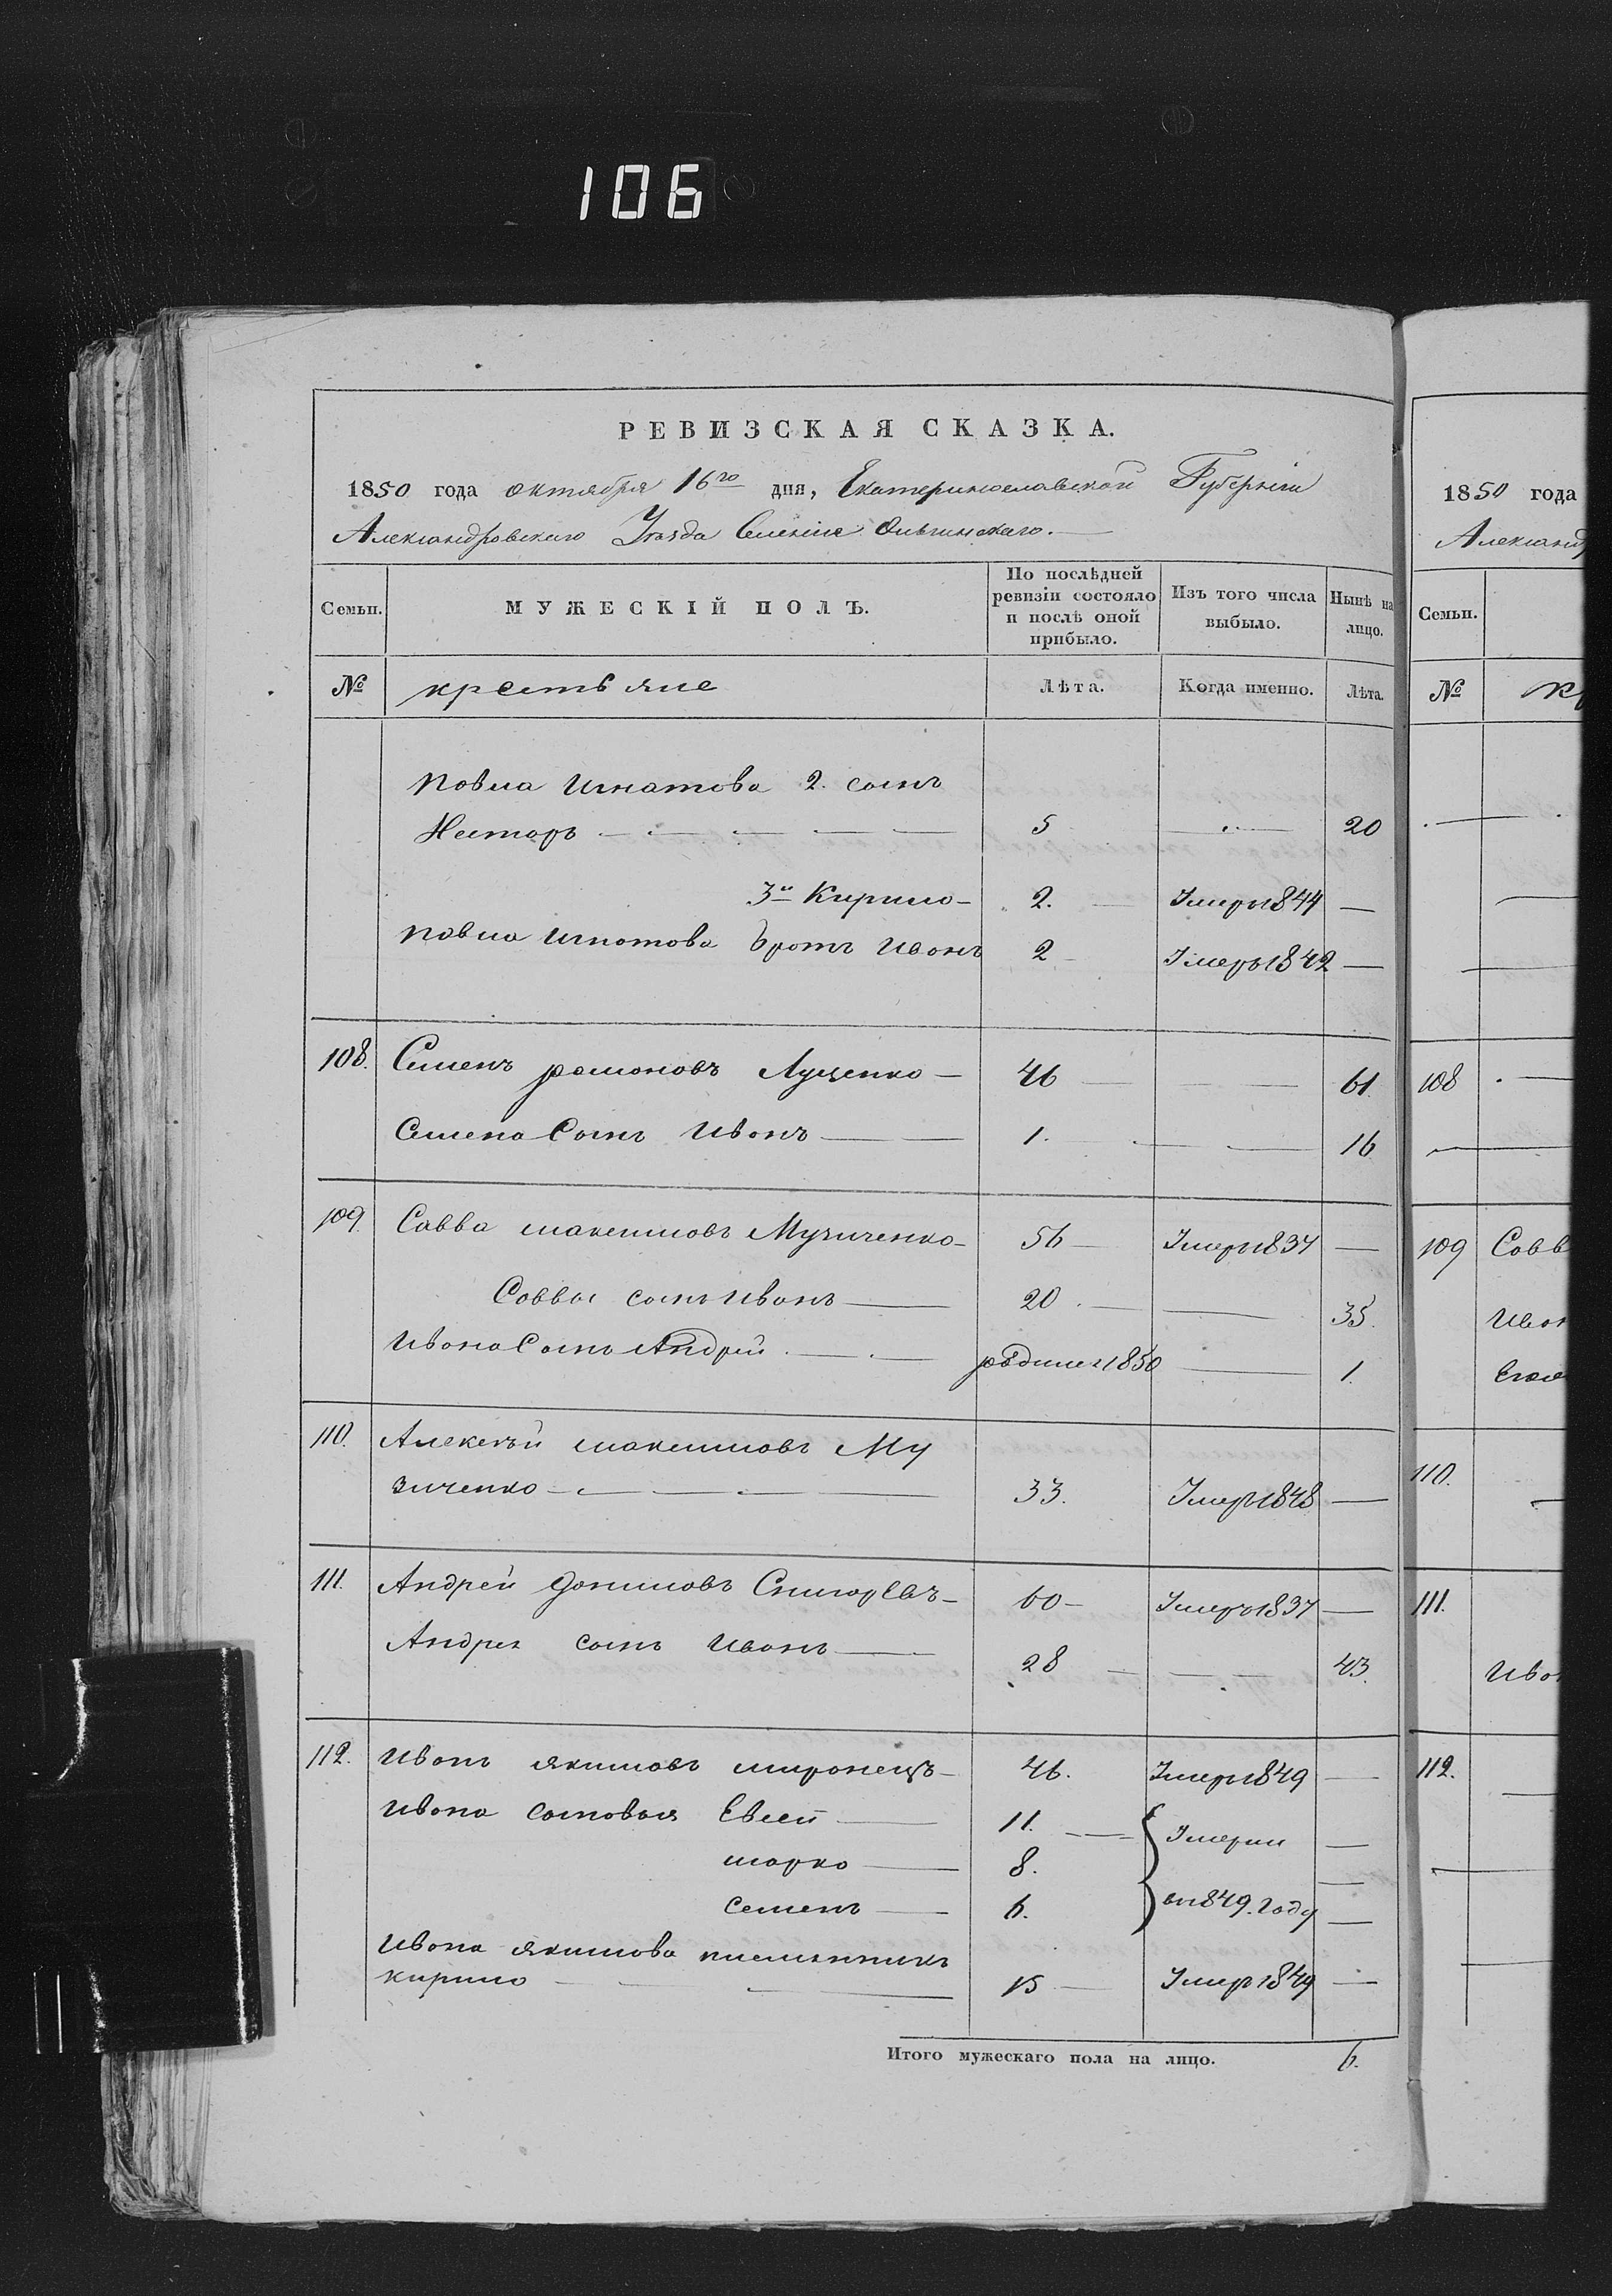 106
РЕВИЗСКАЯ СКАЗКА.
1850 года октября 16го дня, Екатеринославской Губерніи
Александровскаго Уѣзда Селенія Ольгинскаго.
Семьи. МУЖЕСКІЙ ПОЛЪ. По послѣдней ревизіи состояло и послѣ оной прибыло. Изъ того числа выбыло. Нынѣ на лицо.
№ крестьяне Лѣта. Когда именно. Лѣта.
Павла Игнатова 2. сынъ
Несторъ 5 20
3й Кирило 2. Умеръ 1844
Павла Игнатова братъ Иванъ 2 Умеръ 1842
108. Семенъ Романовъ Луценко 46 61
Семена Сынъ Иванъ 1. 16
109. Савва Максимовъ Музиченко 56 Умеръ 1837
Саввы сынъ Иванъ 20 35.
Ивана Сынъ Андрей родился 1850 1.
110. Алексѣй Максимовъ Му
зиченко 33. Умеръ 1848
111. Андрей Даниловъ Снигоревъ 60 Умеръ 1837
Андрея сынъ Иванъ 28 43.
112. Иванъ Якимовъ Миронецъ 46. Умеръ 1849
Ивана сыновья Евсей 11. Умерли
Марко 8.
Семенъ 6. въ 1849. году
Ивана Якимова племянникъ
Кирило 15 Умеръ 1849
Итого мужескаго пола на лицо. 6.
1850 года
Александ
Семьи.
№ кр
108
109 Савв
Иван
Его
110.
111.
Иван
112.